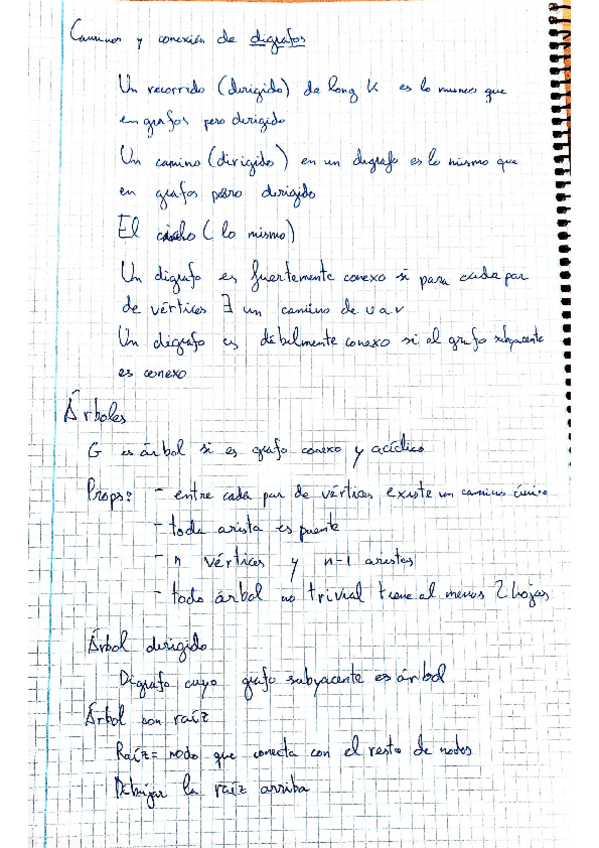 Caminos y conexión de digrafos
Un recorrido (dirigido) de long K es lo mismo que
en grafos pero dirigido
Un camino (dirigido) en un digrafo es lo mismo que
en grafos pero dirigido
El (lo mismo)
Un digrafo es fuertemente conexo si para cada par
de vértices ∃ un camino de u a v
Un digrafo es débilmente conexo si el grafo subyacente
es conexo
Árboles
G es árbol si es grafo conexo y acíclico
Props: - entre cada par de vértices existe un camino único
- toda arista es puente
- n vértices y n-1 aristas
- todo árbol no trivial tiene al menos 2 hojas
Árbol dirigido
Digrafo cuyo grafo subyacente es árbol
Árbol con raíz
Raíz = nodo que conecta con el resto de nodos
Dibujar la raíz arriba